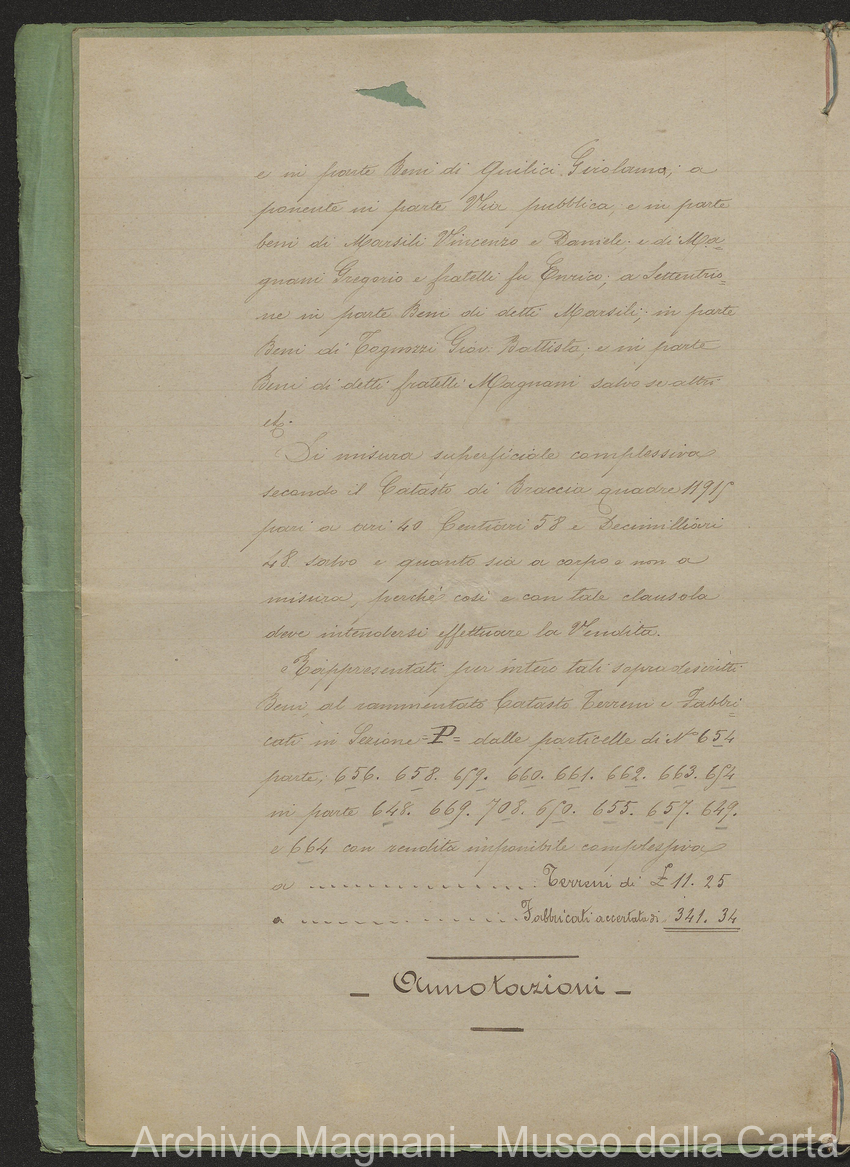 e in parte Beni di Quilici Girolamo; a
ponente in parte Via pubblica, e in parte
beni di Marsili Vincenzo e Daniele e di Ma=
gnani Gregorio e fratelli fu Enrico; a Settentrio=
ne in parte Beni di detti Marsili; in parte
Beni di Tognozzi Giov. Battista; e in parte
Beni di detti fratelli Magnani salvo se altri
etc.
Di misura superficiale complessiva
secondo il Catasto di Braccia quadre 11915
pari a ari 40 Centiari 58 e Decimilliari
48 salvo e quanto sia a corpo e non a
misura, perché così e con tale clausola
deve intendersi effettuare la Vendita.
Rappresentati per intero tali sopra descritti
Beni al rammentato Catasto Terreni e Fabbri=
cati in Sezione =P= dalle particelle di N° 654
parte, 656. 658. 659. 660. 661. 662. 663. 654
in parte 648. 669. 708. 650. 655. 657. 649.
e 664 con rendita imponibile complessiva
a ............... Terreni di £ 11. 25
a ............... Fabbricati accertata di 341. 34
- Annotazioni -
Archivio Magnani - Museo della Carta